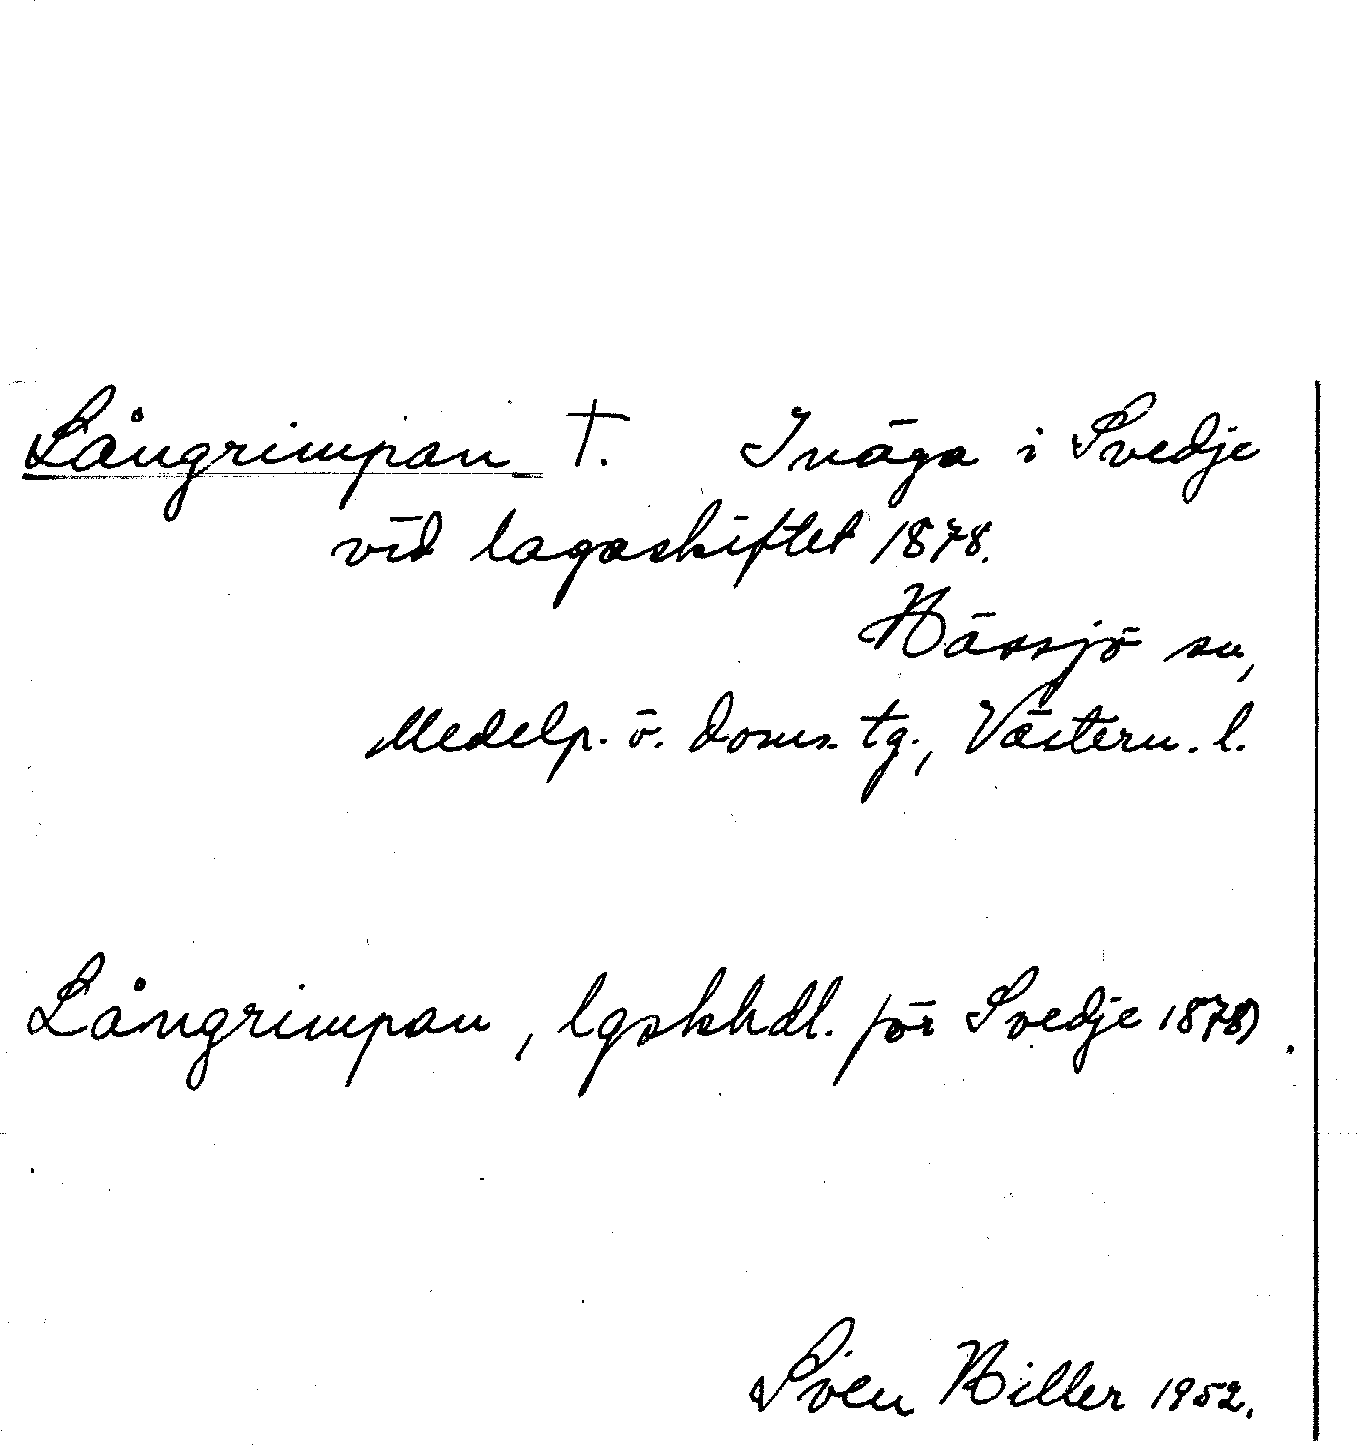 Långrimpan †. Inäga i Svedje
vid lagaskiftet 1878.
Hässjö sn,
Medelp. ö. doms. tg., Västern. l.
Långrimpan, lgskhdl. för Svedje 1878.
Sven Hiller 1952.